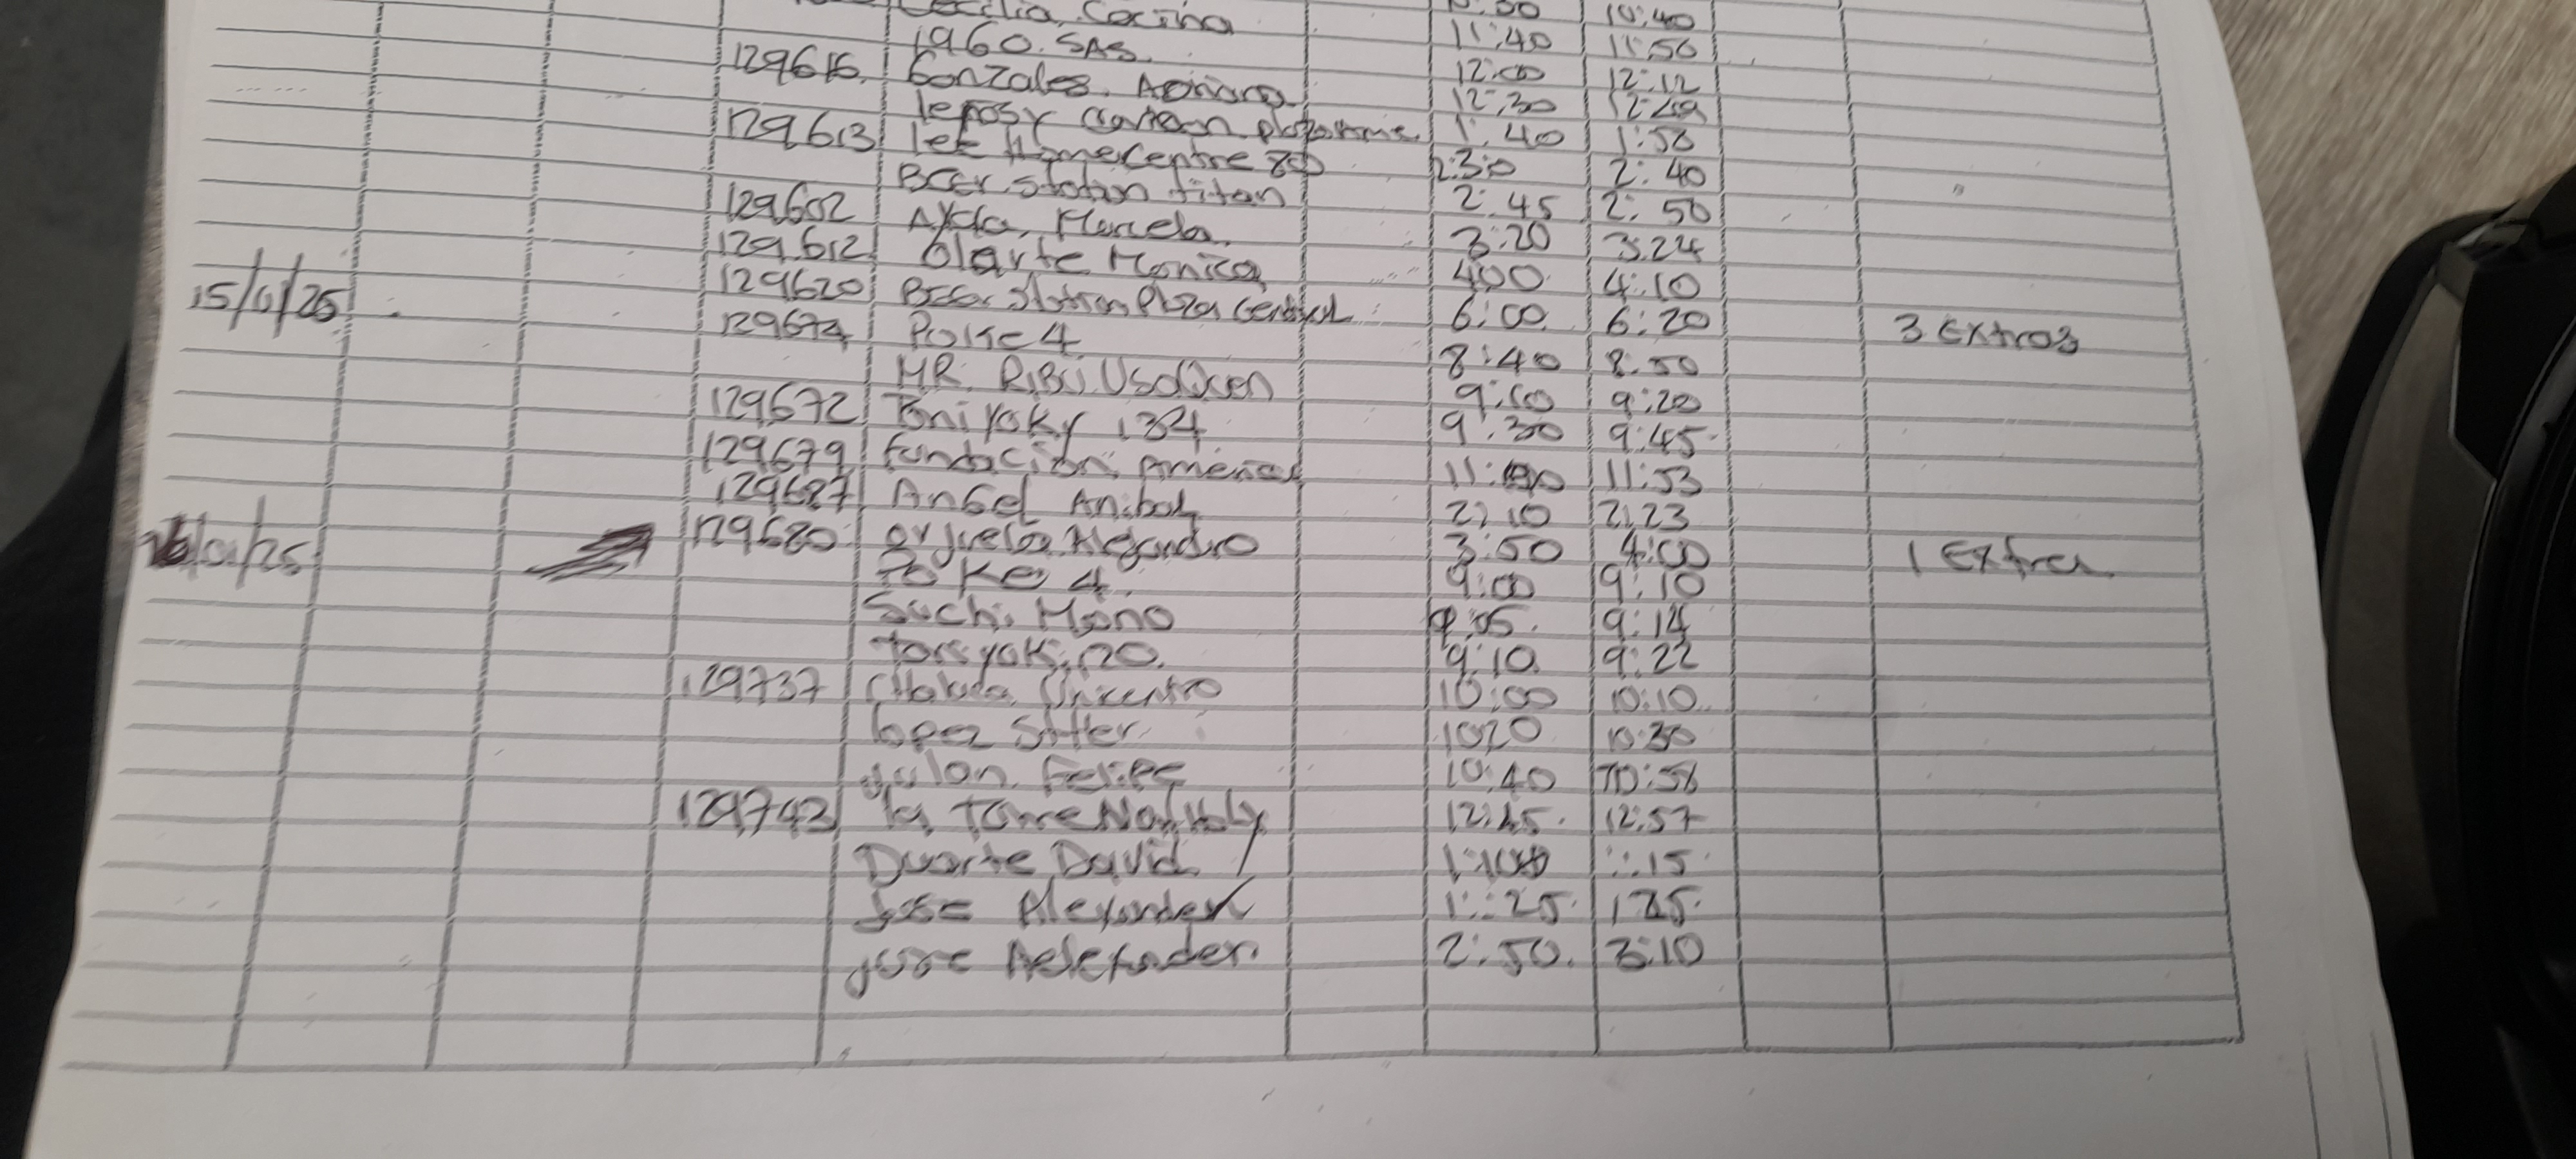 Cecilia Cocina 10:40
1960. SAS. 11:40 11:50
129616. Gonzales. Adriana 12:00 12:12
12:30 12:49
129613 1:40 1:50
lee Homecentre 80 2:30 2:40
Beer station titan 2:45 2:50
129602 Ayda, Marcela. 3:20 3:24
129612 Olarte Monica 4:00 4:10
15/01/25 129620 Beer Station Plaza Central 6:00 6:20 3 Extras
129674 Poke 4 8:40 8:50
MR. RIBU. Usaquen 9:10 9:20
129672 Toniyoky 134 9:30 9:45
129679 Fundacion America 11:53
129687 Angel Anibal 2:10 2:23
/01/25 129680 Orjuela Alejandro 3:50 4:00 1 Extra
Poke 4. 9:00 9:10
Suchi Mono 9:05. 9:14
9:10 9:22
129737 Unicentro 10:00 10:10
lopez 10:20 10:30
Felipe 10:40 10:58
129743 la Torre 12:45. 12:57
Duarte David 1:15
Jose Alexander 1:25
Jose Aelexander. 2:50. 3:10